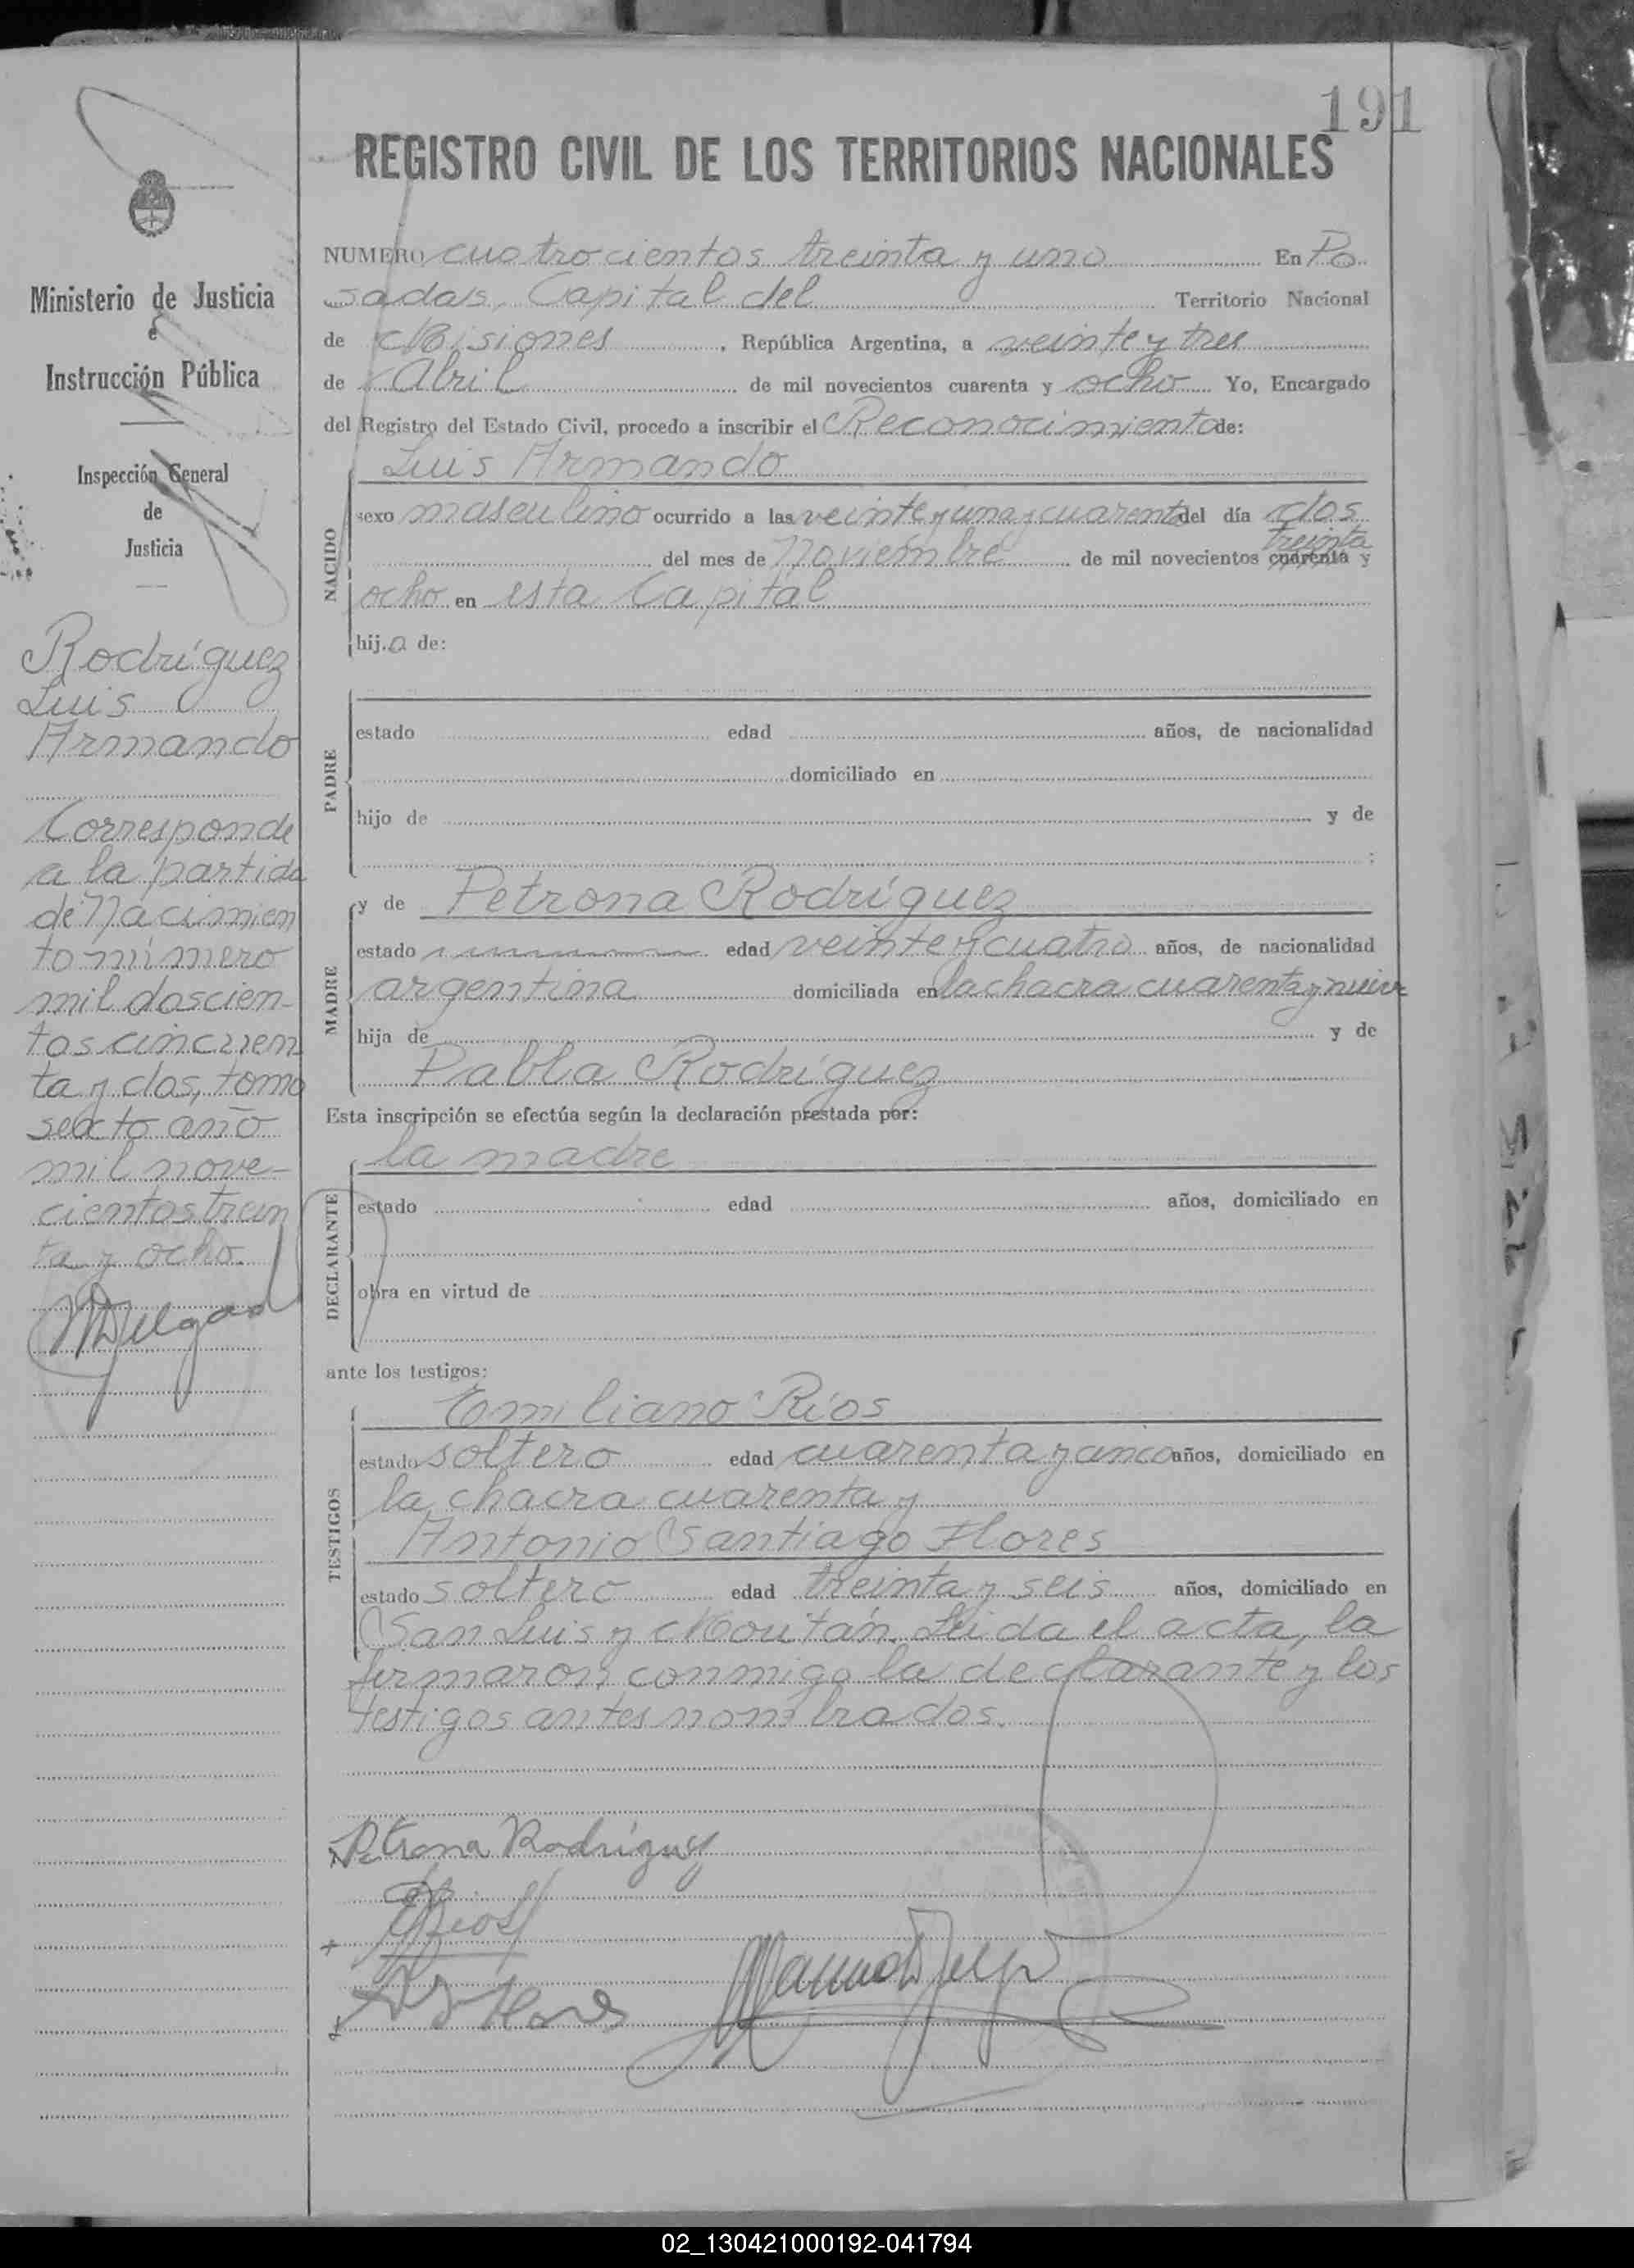 191
REGISTRO CIVIL DE LOS TERRITORIOS NACIONALES
Ministerio de Justicia
é
Instrucción Pública
Inspección General
de
Justicia
Rodríguez
Luis
Armando
Corresponde
a la partida
de Nacimien
to número
mil doscien-
tos cincuen
ta y dos, tomo
sexto año
mil nove-
cientos trein
ta y ocho.
NUMERO cuatrocientos treinta y uno En Po
sadas, Capital del Territorio Nacional
de Misiones, República Argentina, a veinte y tres
de Abril de mil novecientos cuarenta y ocho Yo, Encargado
del Registro del Estado Civil, procedo a inscribir el Reconocimiento de:
Luis Armando
NACIDO
sexo masculino ocurrido a las veinte y una y cuarenta del día dos
treinta
del mes de Noviembre de mil novecientos cuarenta y
ocho en esta Capital
hijo de:
PADRE
estado edad años, de nacionalidad
domiciliado en
hijo de y de
;
MADRE
y de Petrona Rodríguez
estado edad veinte y cuatro años, de nacionalidad
argentina domiciliada en la chacra cuarenta y nueve
hija de y de
Pabla Rodríguez
Esta inscripción se efectúa según la declaración prestada por:
DECLARANTE
la madre
estado edad años, domiciliado en
obra en virtud de
ante los testigos:
TESTIGOS
Emiliano Ríos
estado soltero edad cuarenta y cinco años, domiciliado en
la chacra cuarenta y
Antonio Santiago Flores
estado soltero edad treinta y seis años, domiciliado en
San Luis y Moután. Leida el acta, la
firmaron conmigo la declarante y los
testigos antes nombrados.
Petrona Rodríguez
ERios
A S Flores
02_130421000192-041794